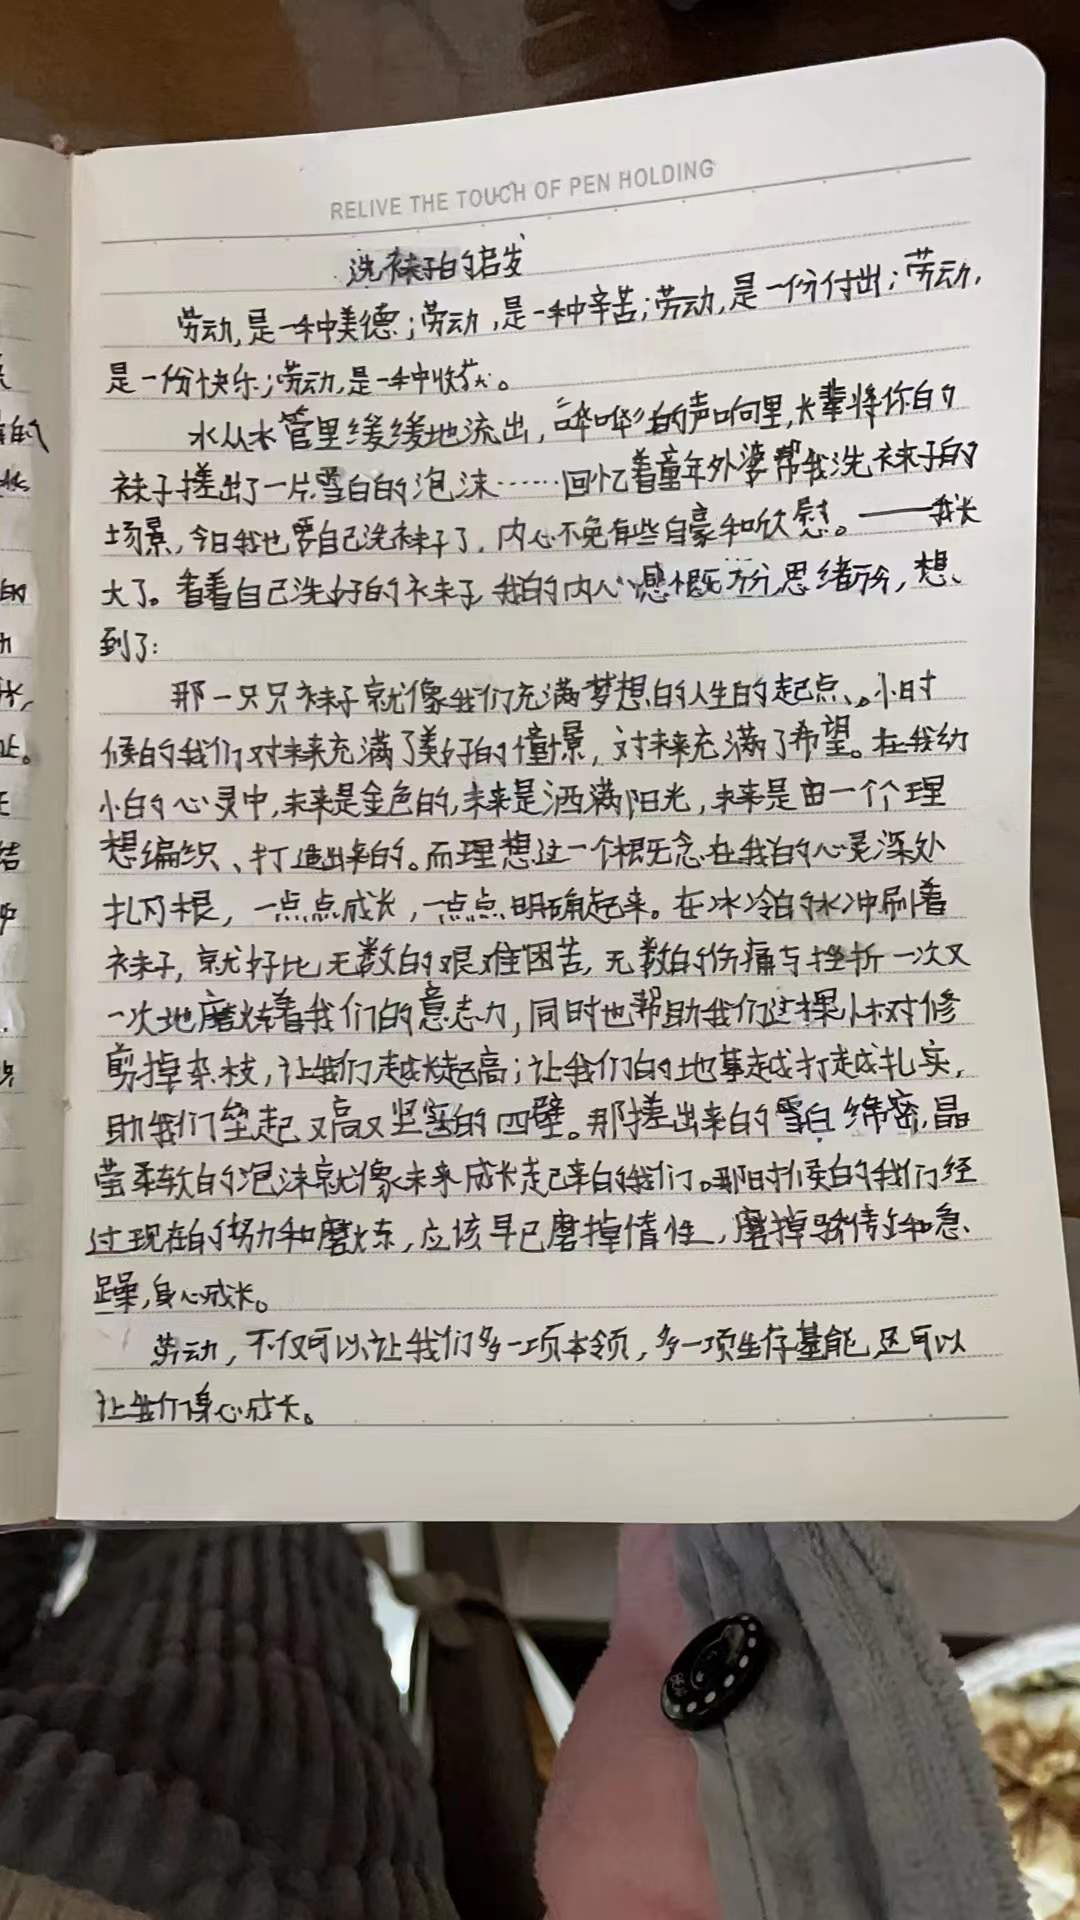 RELIVE THE TOUCH OF PEN HOLDING
洗袜子的启发
劳动,是一种美德;劳动,是一种辛苦;劳动,是一份付出;劳动,
是一份快乐;劳动,是一种收获。
水从水管里缓缓地流出,“哗哗”的声响里,长辈将你的
袜子搓出了一片雪白的泡沫……回忆着童年外婆帮我洗袜子的
场景,今日我也要自己洗袜子了,内心不免有些自豪和欣慰。——我长
大了。看着自己洗好的袜子,我的内心感慨万分,思绪万分,想
到了:
那一只只袜子就像我们充满梦想的人生的起点。小时
候的我们对未来充满了美好的憧憬,对未来充满了希望。在我幼
小的心灵中,未来是金色的,未来是洒满阳光,未来是由一个个理
想编织、打造出来的。而理想这一个概念在我的心灵深处
扎下根,一点点成长,一点点明确起来。在冰冷的水冲刷着
袜子,就好比无数的艰难困苦,无数的伤痛与挫折一次又
一次地磨炼着我们的意志力,同时也帮助我们这棵小树修
剪掉杂枝,让我们越长越高;让我们的地基越打越扎实,
助我们垒起又高又坚实的四壁。那搓出来的雪白,绵密,晶
莹柔软的泡沫就像未来成长起来的我们。那时候的我们经
过现在的努力和磨炼,应该早已磨掉惰性,磨掉骄傲和急
躁,身心成长。
劳动,不仅可以让我们多一项本领,多一项生存基能,还可以
让我们身心成长。